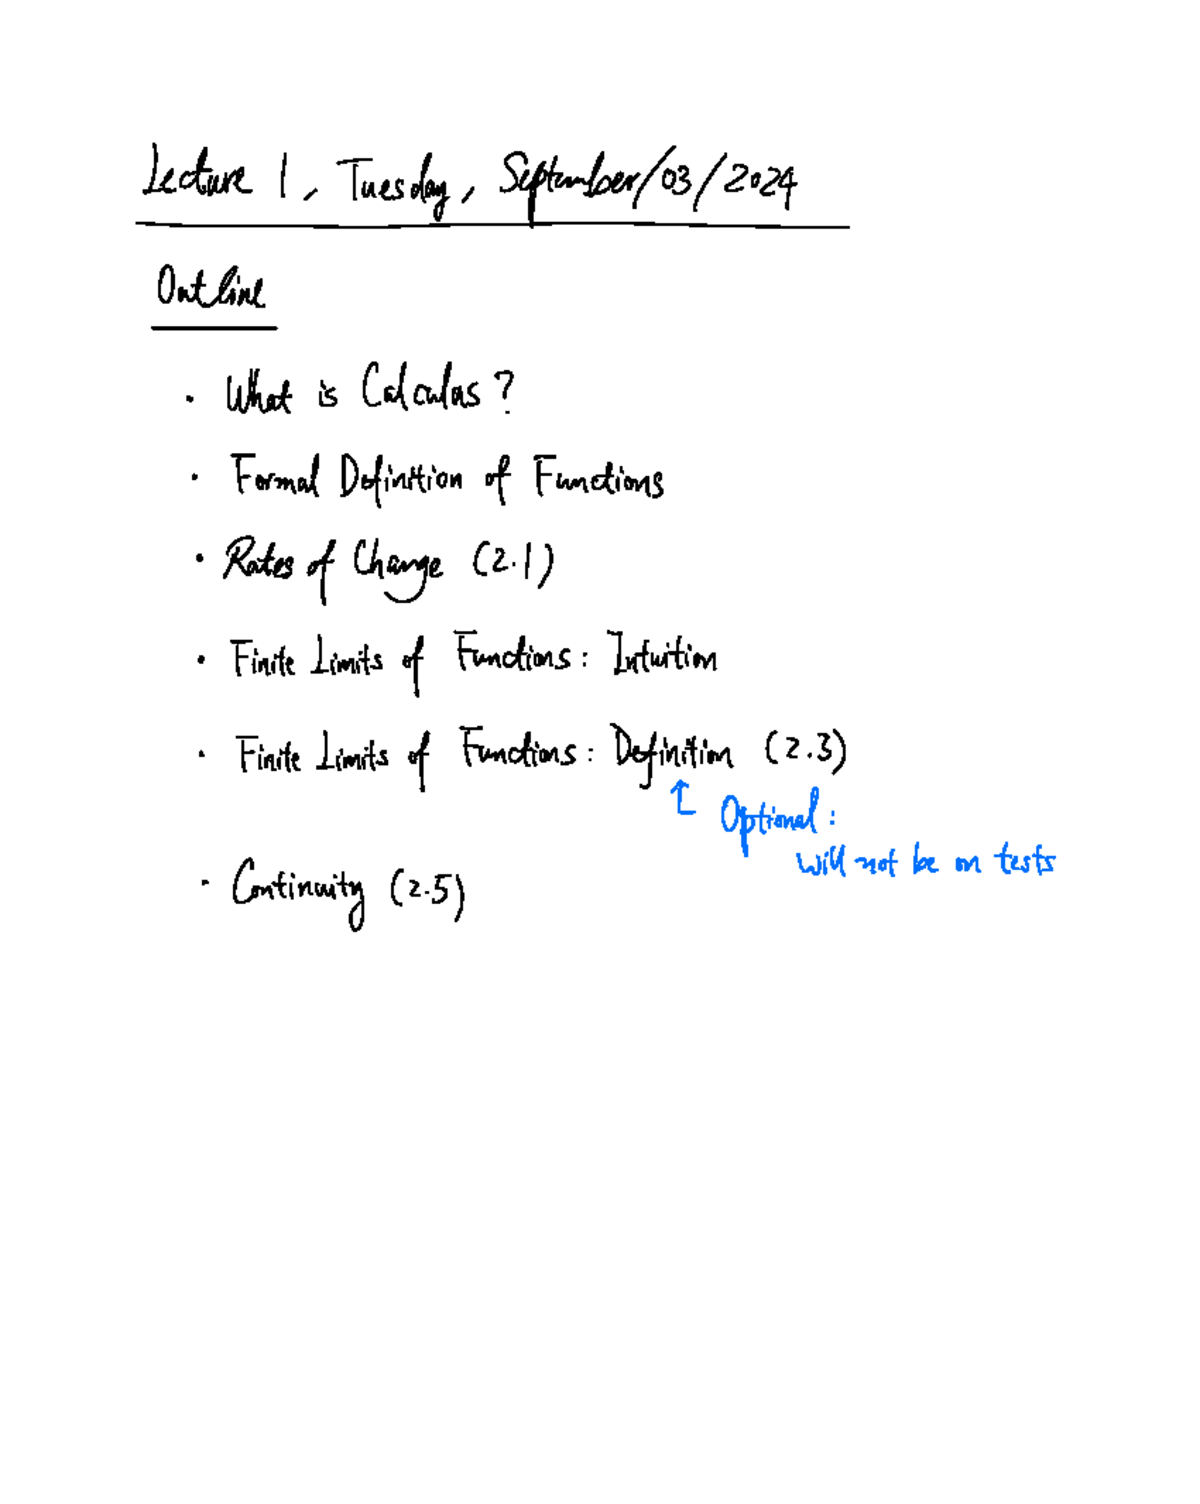 Lecture 1, Tuesday, September/03/2024
Outline
· What is Calculus?
· Formal Definition of Functions
· Rates of Change (2.1)
· Finite Limits of Functions: Intuition
· Finite Limits of Functions: Definition (2.3)
↑ Optional:
will not be on tests
· Continuity (2.5)